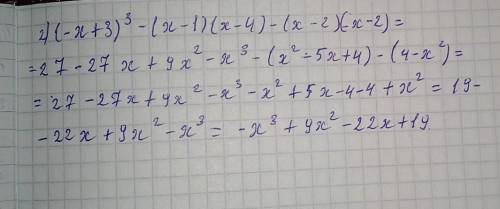 2) (-x+3)³ - (x-1)(x-4) - (x-2)(-x-2) =
= 27 - 27x + 9x² - x³ - (x² - 5x + 4) - (4 - x²) =
= 27 - 27x + 9x² - x³ - x² + 5x - 4 - 4 + x² = 19 -
- 22x + 9x² - x³ = -x³ + 9x² - 22x + 19.